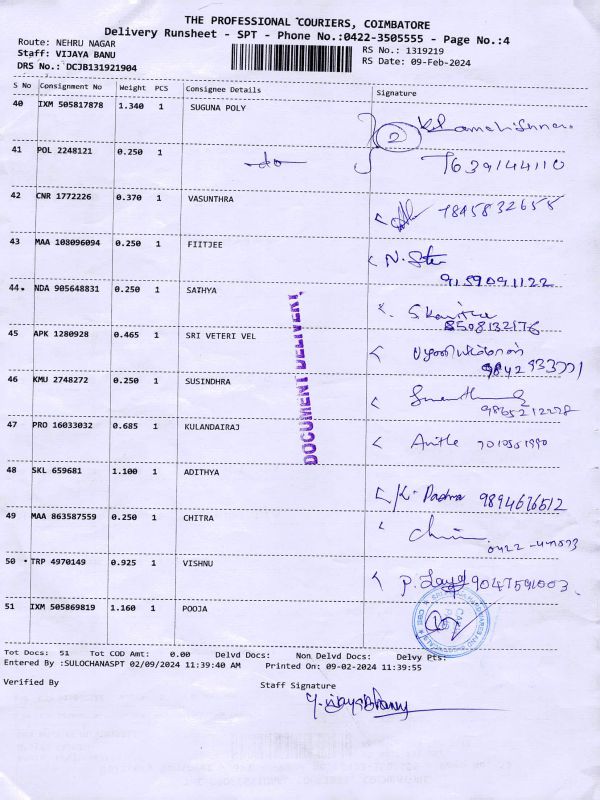 THE PROFESSIONAL COURIERS, COIMBATORE
Delivery Runsheet - SPT - Phone No.:0422-3505555 - Page No.:4
Route: NEHRU NAGAR
RS No.: 1319219
Staff: VIJAYA BANU
RS Date: 09-Feb-2024
DRS No.: DCJB131921904
S No Consignment No Weight PCS Consignee Details Signature
40 IXM 505817878 1.340 1 SUGUNA POLY 2
41 POL 2248121 0.250 1 -do- 7639144110
42 CNR 1772226 0.370 1 VASUNTHRA 7845832655
43 MAA 108096094 0.250 1 FIITJEE N.
9159091122
44 NDA 905648831 0.250 1 SATHYA
8508132176
45 APK 1280928 0.465 1 SRI VETERI VEL
46 KMU 2748272 0.250 1 SUSINDHRA
47 PRO 16033032 0.685 1 KULANDAIRAJ
48 SKL 659681 1.100 1 ADITHYA K. Padma 9894676512
49 MAA 863587559 0.250 1 CHITRA
50 TRP 4970149 0.925 1 VISHNU P. 9047591003
51 IXM 505869819 1.160 1 POOJA
DOCUMENT DELIVERY
Tot Docs: 51 Tot COD Amt: 0.00 Delvd Docs: Non Delvd Docs: Delvy Pts:
Entered By :SULOCHANASPT 02/09/2024 11:39:40 AM Printed On: 09-02-2024 11:39:55
Verified By
Staff Signature